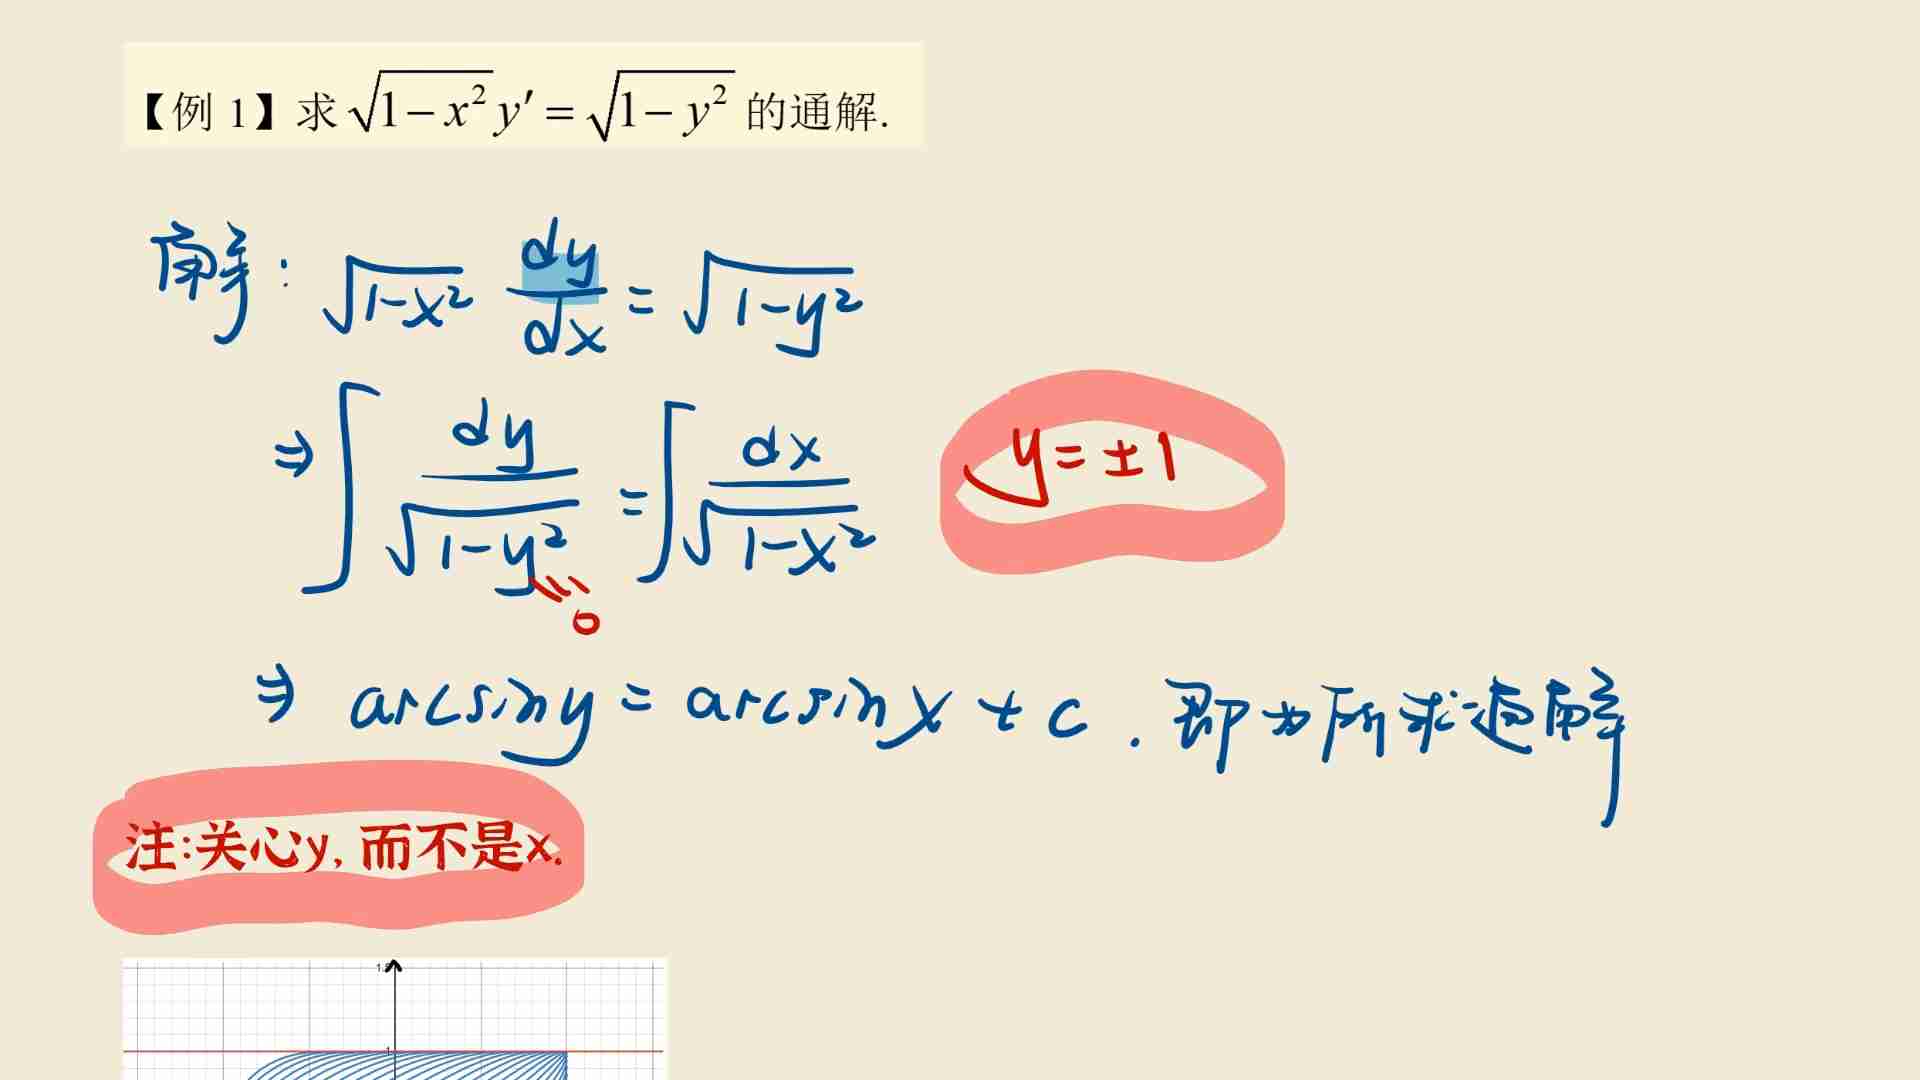 【例 1】求 √(1−x²) y′ = √(1−y²) 的通解.
解: √(1-x²) dy/dx = √(1-y²)
⇒ ∫ dy/√(1-y²) = ∫ dx/√(1-x²) y = ±1
0
⇒ arcsiny = arcsinx + c . 即为所求通解
注:关心y, 而不是x.
1